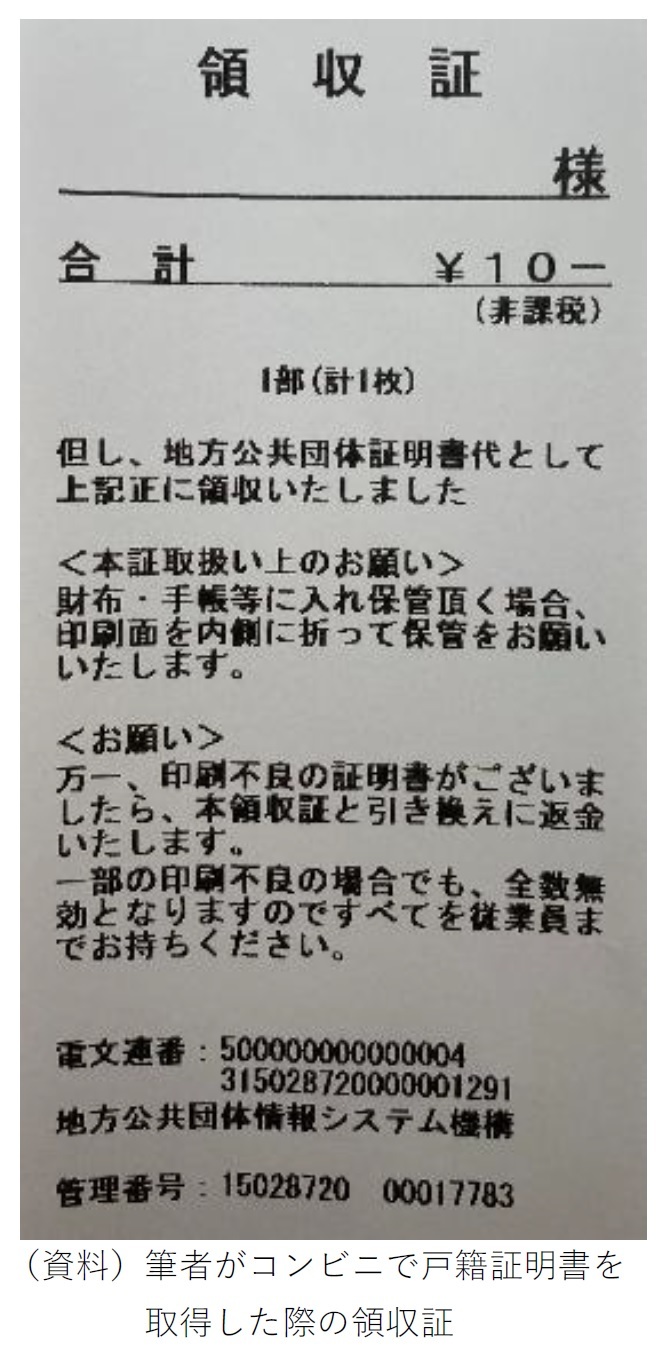 領 収 証
様
合 計 ¥10ー
(非課税)
1部(計1枚)
但し、地方公共団体証明書代として
上記正に領収いたしました
<本証取扱い上のお願い>
財布・手帳等に入れ保管頂く場合、
印刷面を内側に折って保管をお願い
いたします。
<お願い>
万一、印刷不良の証明書がございま
したら、本領収証と引き換えに返金
いたします。
一部の印刷不良の場合でも、全数無
効となりますのですべてを従業員ま
でお持ちください。
電文連番:500000000000004
315028720000001291
地方公共団体情報システム機構
管理番号:15028720 00017783
(資料)筆者がコンビニで戸籍証明書を
取得した際の領収証